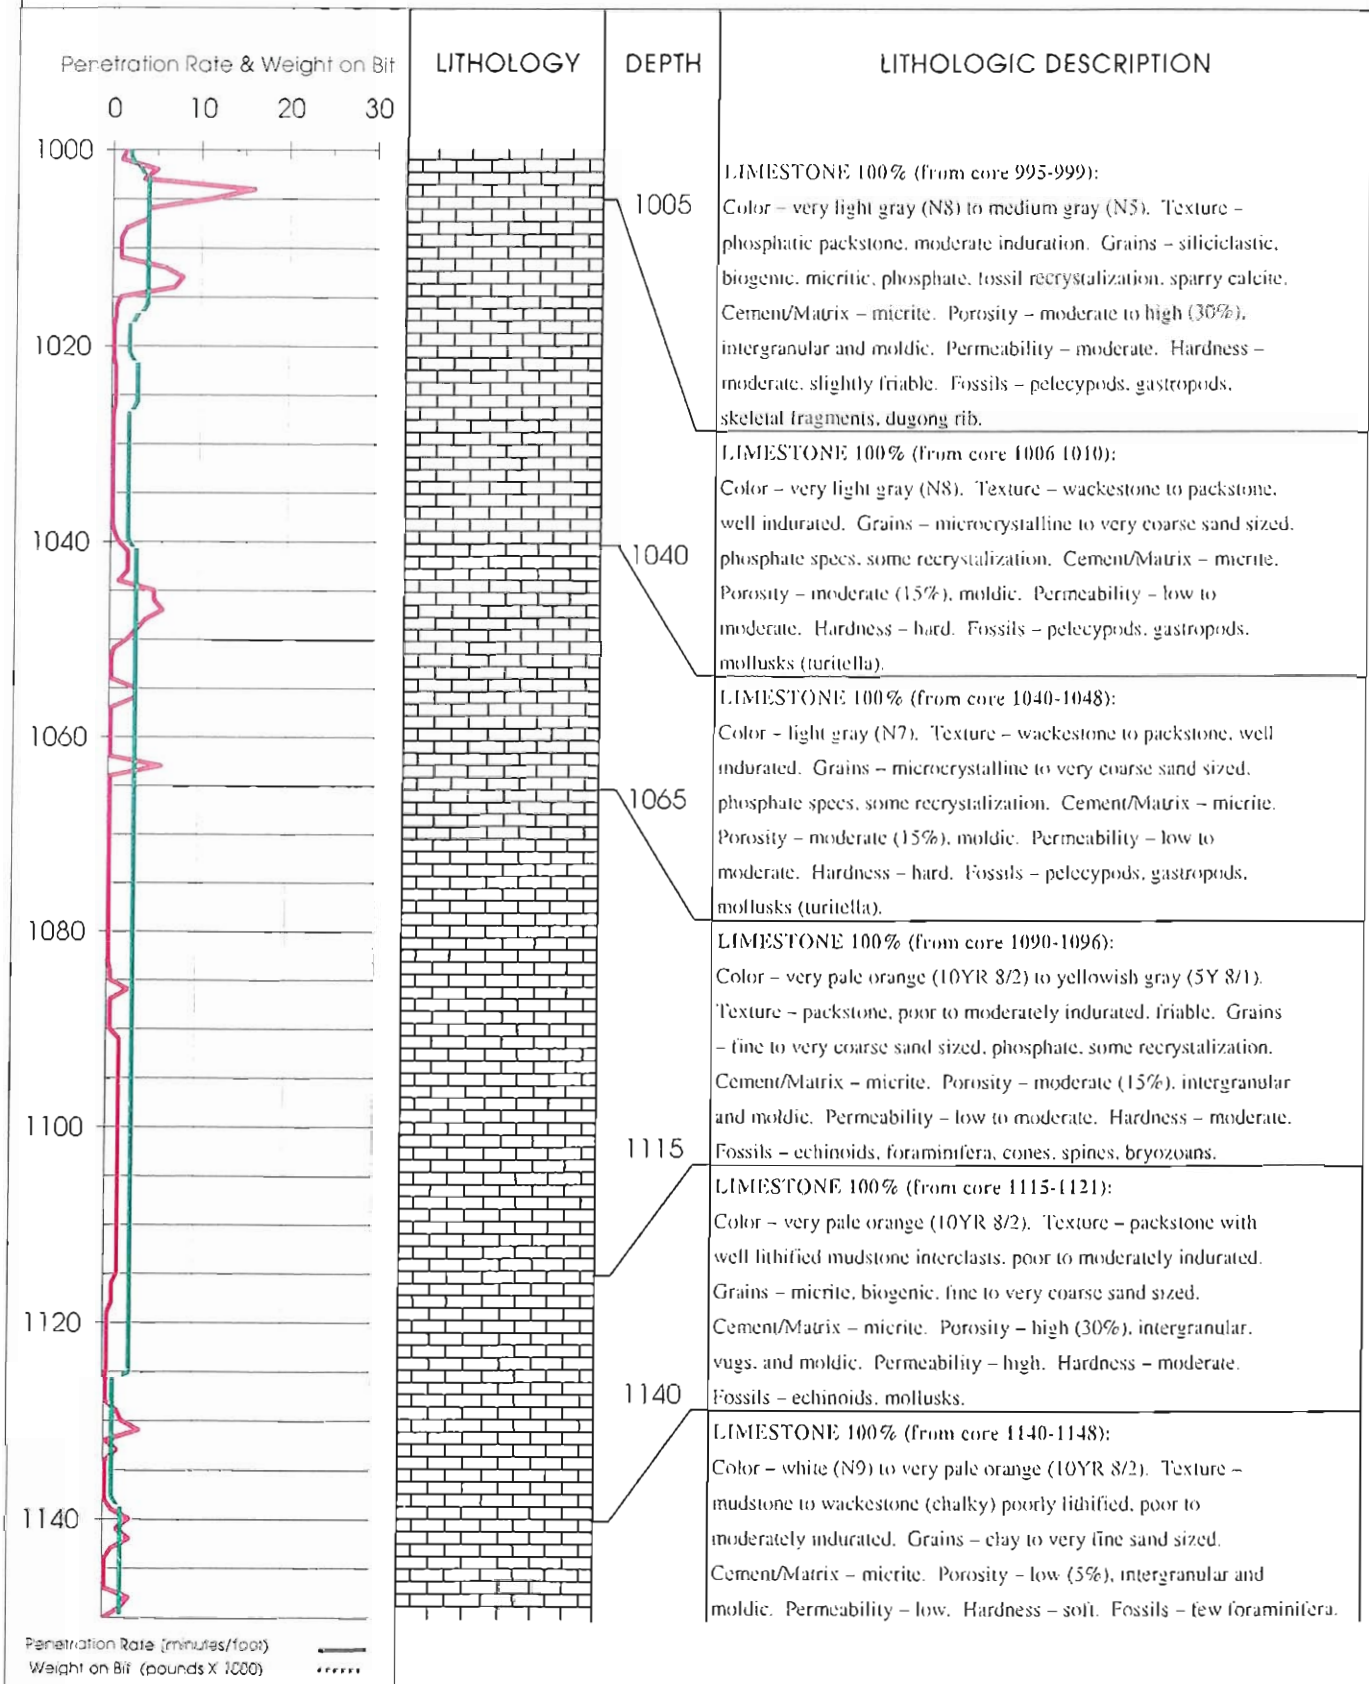 Penetration Rate & Weight on Bit
LITHOLOGY
DEPTH
LITHOLOGIC DESCRIPTION
0 10 20 30
1000
1020
1040
1060
1080
1100
1120
1140
1005
1040
1065
1115
1140
LIMESTONE 100% (from core 995-999):
Color – very light gray (N8) to medium gray (N5). Texture –
phosphatic packstone, moderate induration. Grains – siliciclastic,
biogenic, micritic, phosphate, fossil recrystalization, sparry calcite.
Cement/Matrix – micrite. Porosity – moderate to high (30%),
intergranular and moldic. Permeability – moderate. Hardness –
moderate, slightly friable. Fossils – pelecypods, gastropods,
skeletal fragments, dugong rib.
LIMESTONE 100% (from core 1006 1010):
Color – very light gray (N8). Texture – wackestone to packstone,
well indurated. Grains – microcrystalline to very coarse sand sized,
phosphate specs, some recrystalization. Cement/Matrix – micrite.
Porosity – moderate (15%), moldic. Permeability – low to
moderate. Hardness – hard. Fossils – pelecypods, gastropods,
mollusks (turitella).
LIMESTONE 100% (from core 1040-1048):
Color – light gray (N7). Texture – wackestone to packstone, well
indurated. Grains – microcrystalline to very coarse sand sized,
phosphate specs, some recrystalization. Cement/Matrix – micrite.
Porosity – moderate (15%), moldic. Permeability – low to
moderate. Hardness – hard. Fossils – pelecypods, gastropods,
mollusks (turitella).
LIMESTONE 100% (from core 1090-1096):
Color – very pale orange (10YR 8/2) to yellowish gray (5Y 8/1).
Texture – packstone, poor to moderately indurated, friable. Grains
– fine to very coarse sand sized, phosphate, some recrystalization.
Cement/Matrix – micrite. Porosity – moderate (15%), intergranular
and moldic. Permeability – low to moderate. Hardness – moderate.
Fossils – echinoids, foraminifera, cones, spines, bryozoans.
LIMESTONE 100% (from core 1115-1121):
Color – very pale orange (10YR 8/2). Texture – packstone with
well lithified mudstone interclasts, poor to moderately indurated.
Grains – micrite, biogenic, fine to very coarse sand sized.
Cement/Matrix – micrite. Porosity – high (30%), intergranular,
vugs, and moldic. Permeability – high. Hardness – moderate.
Fossils – echinoids, mollusks.
LIMESTONE 100% (from core 1140-1148):
Color – white (N9) to very pale orange (10YR 8/2). Texture –
mudstone to wackestone (chalky) poorly lithified, poor to
moderately indurated. Grains – clay to very fine sand sized.
Cement/Matrix – micrite. Porosity – low (5%), intergranular and
moldic. Permeability – low. Hardness – soft. Fossils – few foraminifera.
Penetration Rate (minutes/foot)
Weight on Bit (pounds X 1000)